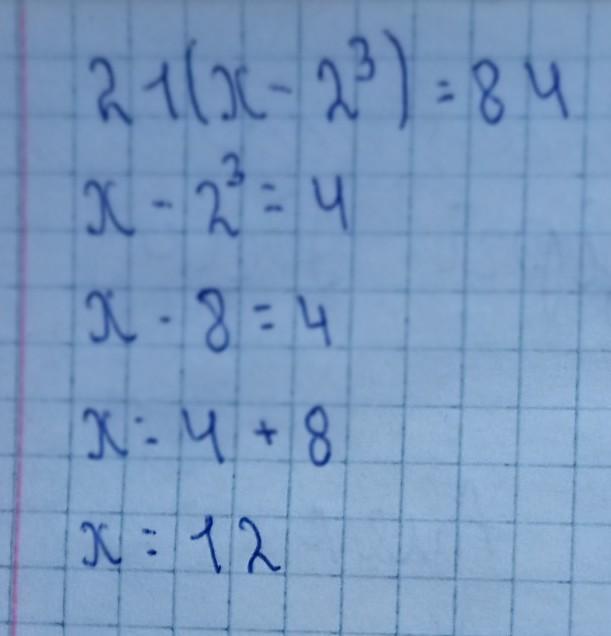 21(x - 2³) = 84
x - 2³ = 4
x - 8 = 4
x = 4 + 8
x = 12